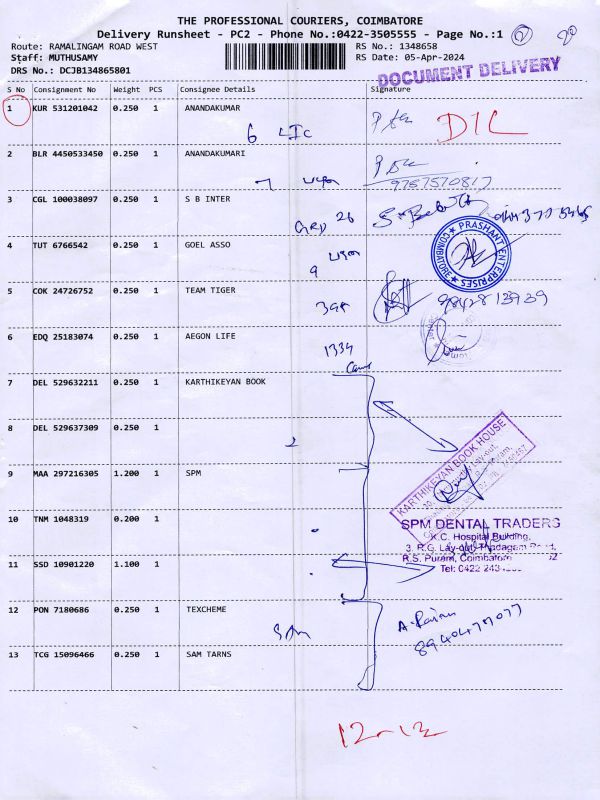 THE PROFESSIONAL COURIERS, COIMBATORE
Delivery Runsheet - PC2 - Phone No.:0422-3505555 - Page No.:1
Route: RAMALINGAM ROAD WEST
RS No.: 1348658
Staff: MUTHUSAMY
RS Date: 05-Apr-2024
DRS No.: DCJB134865801
DOCUMENT DELIVERY
S No Consignment No Weight PCS Consignee Details Signature
1 KUR 531201042 0.250 1 ANANDAKUMAR
6 LIC
2 BLR 4450533450 0.250 1 ANANDAKUMARI
7
9757570817
3 CGL 100038097 0.250 1 S B INTER
GRD 26
4 TUT 6766542 0.250 1 GOEL ASSO
9
PRASHANT ENTERPRISES
COIMBATORE
5 COK 24726752 0.250 1 TEAM TIGER
6 EDQ 25183074 0.250 1 AEGON LIFE
1334
7 DEL 529632211 0.250 1 KARTHIKEYAN BOOK
8 DEL 529637309 0.250 1
2
KARTHIKEYAN BOOK HOUSE
9 MAA 297216305 1.200 1 SPM
10 TNM 1048319 0.200 1
SPM DENTAL TRADERS
K.C. Hospital Building,
3, R.G. Lay-out, Thadagam
R.S. Puram, Coimbatore
Tel: 0422 243
11 SSD 10901220 1.100 1
12 PON 7180686 0.250 1 TEXCHEME
13 TCG 15096466 0.250 1 SAM TARNS
12-12